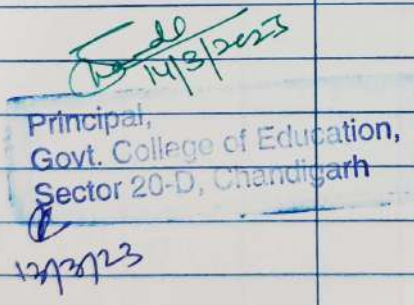 14/3/2023
Principal,
Govt. College of Education,
Sector 20-D, Chandigarh
13/3/23